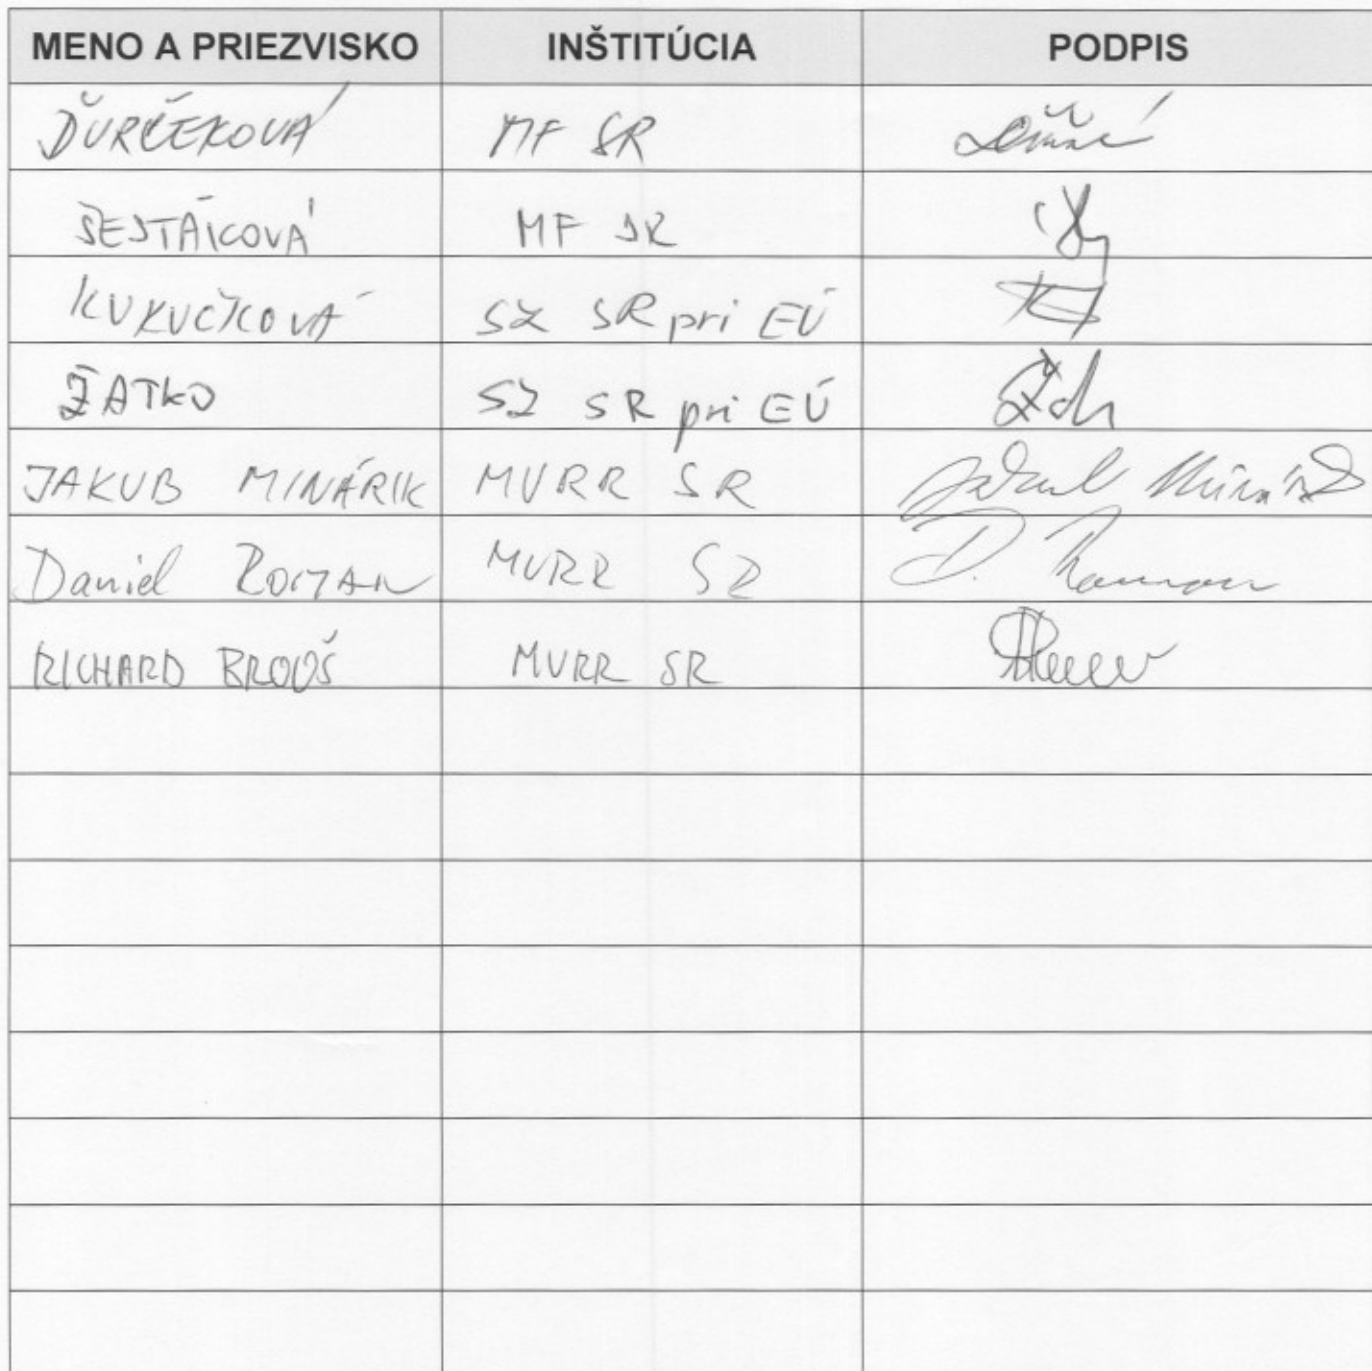 MENO A PRIEZVISKO INŠTITÚCIA PODPIS
ĎURČEKOVÁ MF SR
ŠESTÁKOVÁ MF SR
KUKUČKOVÁ SZ SR pri EÚ
ŽATKO SZ SR pri EÚ
JAKUB MINÁRIK MVRR SR Jakub Minárik
Daniel ROMAN MVRR SR D. Roman
RICHARD MVRR SR